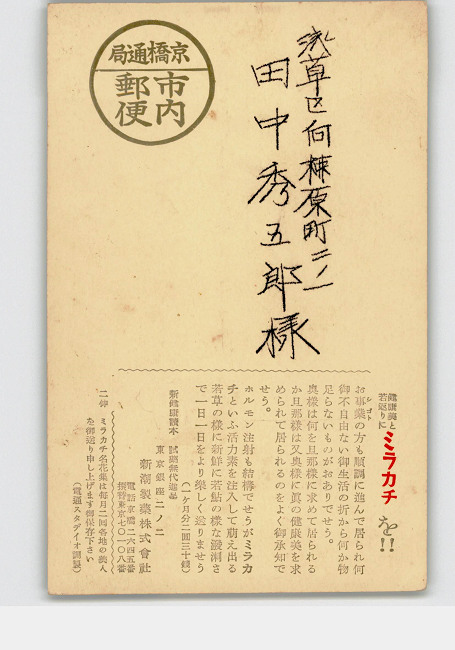 京橋通局
市内
郵便
浅草区向柳原町二ノ一
田中秀五郎様
健康美と
若返りに
ミラカチを!!
お事業の方も順調に進んで居られ何
御不自由ない御生活の折から何か物
足らないものがおありでせう。
奥様は何を旦那様に求めて居られる
か旦那様は又奥様に眞の健康美を求
められて居られるのをよく御承知で
せう。
ホルモン注射も結構でせうがミラカ
チといふ活力素を注入して萌え出る
若草の様に新鮮に若鮎の様な潑溂さ
で一日一日をより樂しく送りませう
(一ケ月分二圓三十錢)
新健康讀本 試驗無代進呈
東京銀座二ノ二
新潮製藥株式會社
電話京橋二六四五番
振替東京七〇一〇八番
二伸 ミラカチ名花集は毎月二回各地の美人
を御送り申し上げます御保存下さい
(電通スタヂイオ調製)